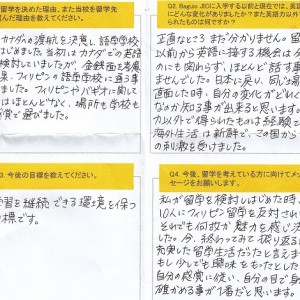 留学を決めた理由、また当校を留学先
んだ理由を教えてください。
カナダへの渡航を決意し、語学学校
はじめました。当初はカナダでの英語
検討していましたが、金銭面を考慮
果、フィリピンの語学学校に通う事
ました。フィリピンやバギオに関して
はほとんどなく、場所も学校も
感覚で選びました。
Q2. Baguio JICに入学する以前と現在では、英語
にどんな変化がありましたか?また英語力以外
られたものは何ですか?
正直なところまだ分かりません。留
以前から英語に接する機会は
のにも関わらず、ほとんど話す事
ませんでした。日本に戻り、同じ
面した時、自分の変化がどれく
なのか知る事が出来ると思います。
力以外で得られたものは経験で
海外生活は新鮮で、この国から
の刺激を受けました。
3. 今後の目標を教えてください。
学習を継続できる環境を保つ
標です。
Q4. 今後、留学を考えている方に向けてメッ
セージをお願いします。
私が留学を検討しはじめた時、
10人にフィリピン留学を反対され
それでも何故か魅力を感じ決
した。今、終わってみて振り返ると
充実した留学生活だったと言えま
もし少しでも興味をもったとした
自分の感覚に従い、自分の目で
確かめる事が1番だと思います。